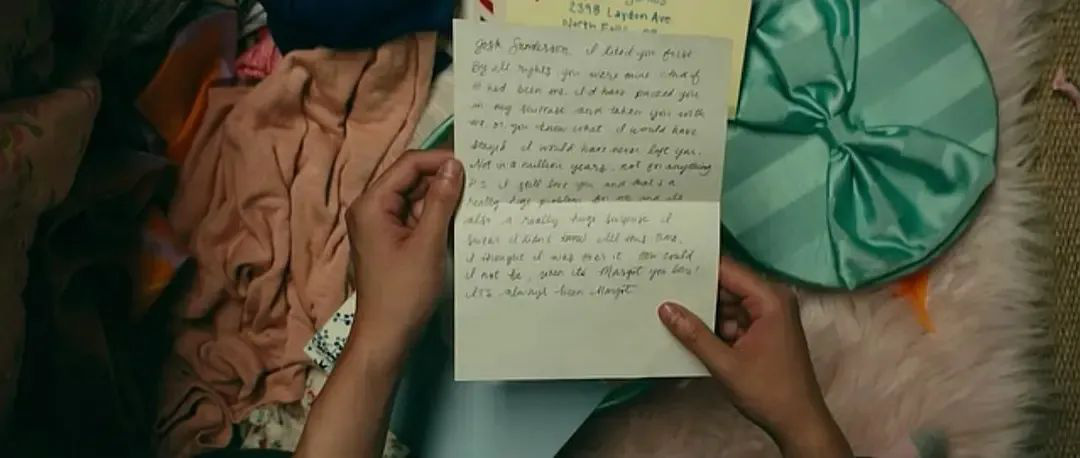 2398 Laydon Ave
North
Josh Sanderson. I liked you first.
By all rights, you were mine. And if
it had been me, I'd have packed you
in my suitcase and taken you with
me, or, you know what, I would have
stayed. I would have never left you.
Not in a million years, not for anything
P.S. I still love you and that's a
really huge problem for me and it's
also a really huge surprise. I
swear I didn't know. All this time,
I thought I was over it. How could
I not be, when it's Margot you love?
It's always been Margot.